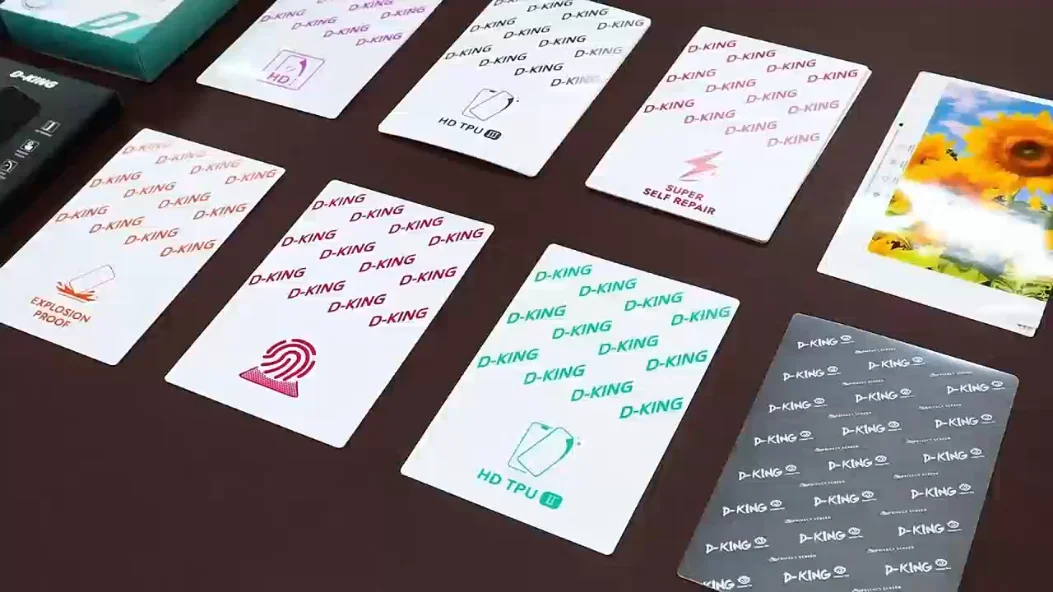 D-KING
D-KING D-KING
D-KING
D-KING
HD
D-KING D-KING
D-KING D-KING
D-KING D-KING
D-KING D-KING
D-KING
HD TPU III
D-KING
D-KING D-KING
D-KING D-KING D-KING
D-KING D-KING
D-KING
D-KING
SUPER
SELF REPAIR
D-KING
D-KING D-KING
D-KING D-KING
D-KING D-KING
D-KING
D-KING
EXPLOSION
PROOF
D-KING
D-KING D-KING
D-KING D-KING D-KING
D-KING D-KING
D-KING D-KING
D-KING
D-KING
HD TPU II
D-KING
D-KING D-KING
D-KING D-KING
D-KING D-KING
D-KING D-KING
D-KING D-KING
D-KING
D-KING
HD TPU II
D-KING
D-KING D-KING
D-KING D-KING
D-KING D-KING
D-KING D-KING
D-KING D-KING
D-KING D-KING
D-KING D-KING
D-KING D-KING
D-KING